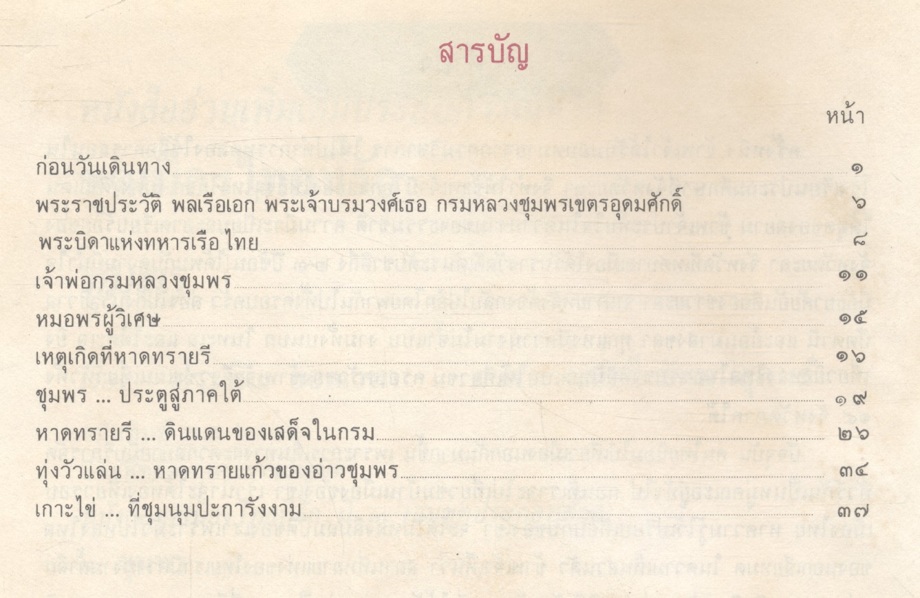 สารบัญ
หน้า
ก่อนวันเดินทาง ๑
พระราชประวัติ พลเรือเอก พระเจ้าบรมวงศ์เธอ กรมหลวงชุมพรเขตรอุดมศักดิ์ ๖
พระบิดาแห่งทหารเรือไทย ๘
เจ้าพ่อกรมหลวงชุมพร ๑๑
หมอพรผู้วิเศษ ๑๕
เหตุเกิดที่หาดทรายรี ๑๖
ชุมพร ... ประตูสู่ภาคใต้ ๑๙
หาดทรายรี ... ดินแดนของเสด็จในกรม ๒๖
ทุ่งวัวแล่น ... หาดทรายแก้วของอ่าวชุมพร ๓๔
เกาะไข่ ... ที่ชุมนุมปะการังงาม ๓๗